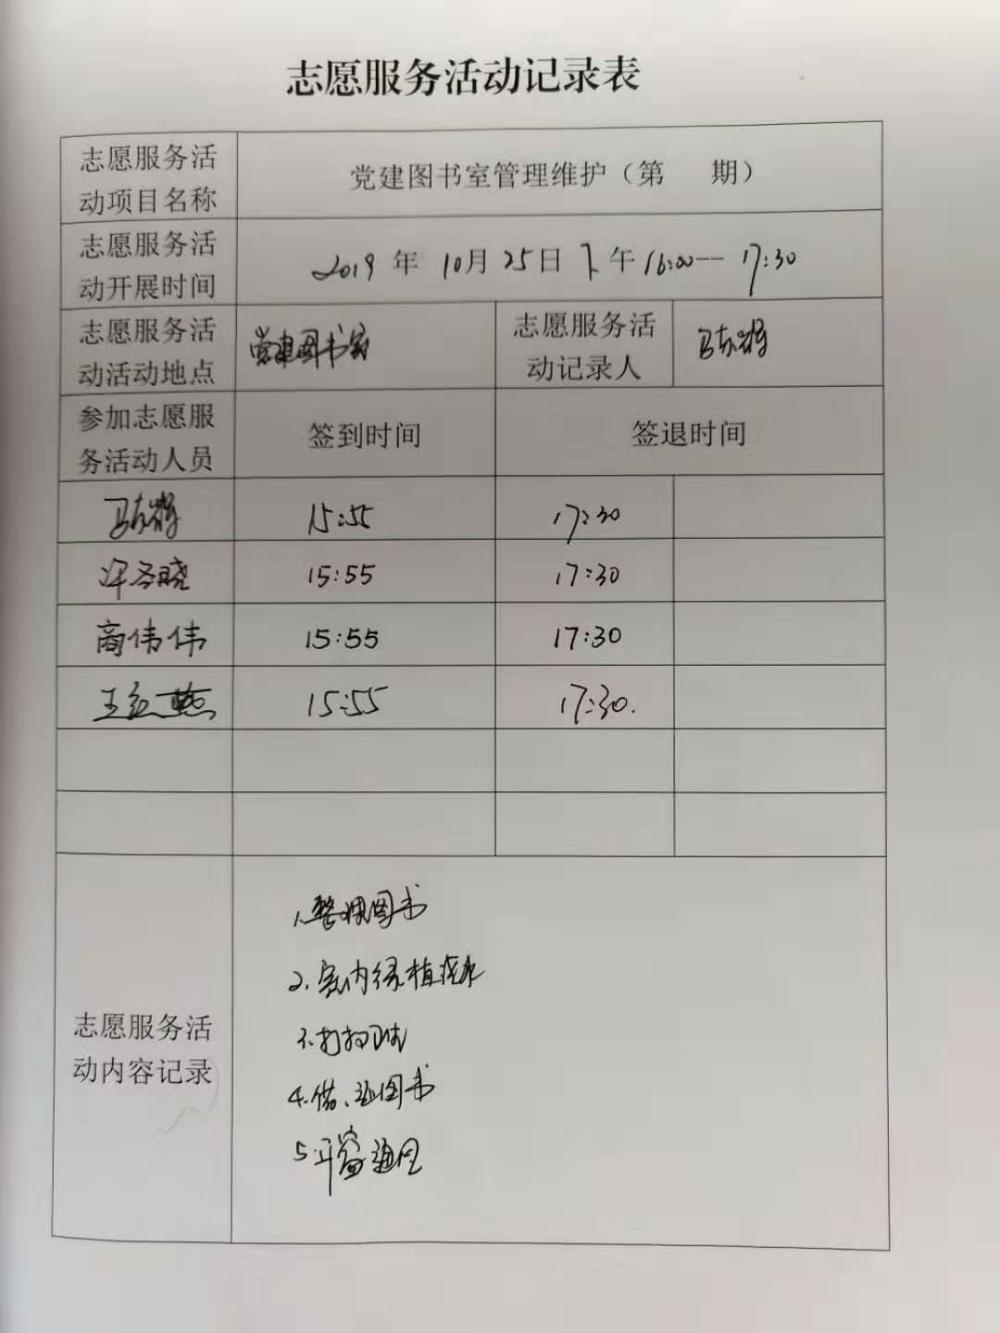 志愿服务活动记录表
志愿服务活
动项目名称
党建图书室管理维护（第 期）
志愿服务活
动开展时间
2019年10月25日下午16:00—17:30
志愿服务活
动活动地点
党建图书室
志愿服务活
动记录人
参加志愿服
务活动人员
签到时间
签退时间
15:55
17:30
15:55
17:30
商伟伟
15:55
17:30
王
15:55
17:30.
志愿服务活
动内容记录
1.整理图书
2.室内绿植浇水
3.打扫
4.借、还图书
5.开窗通风